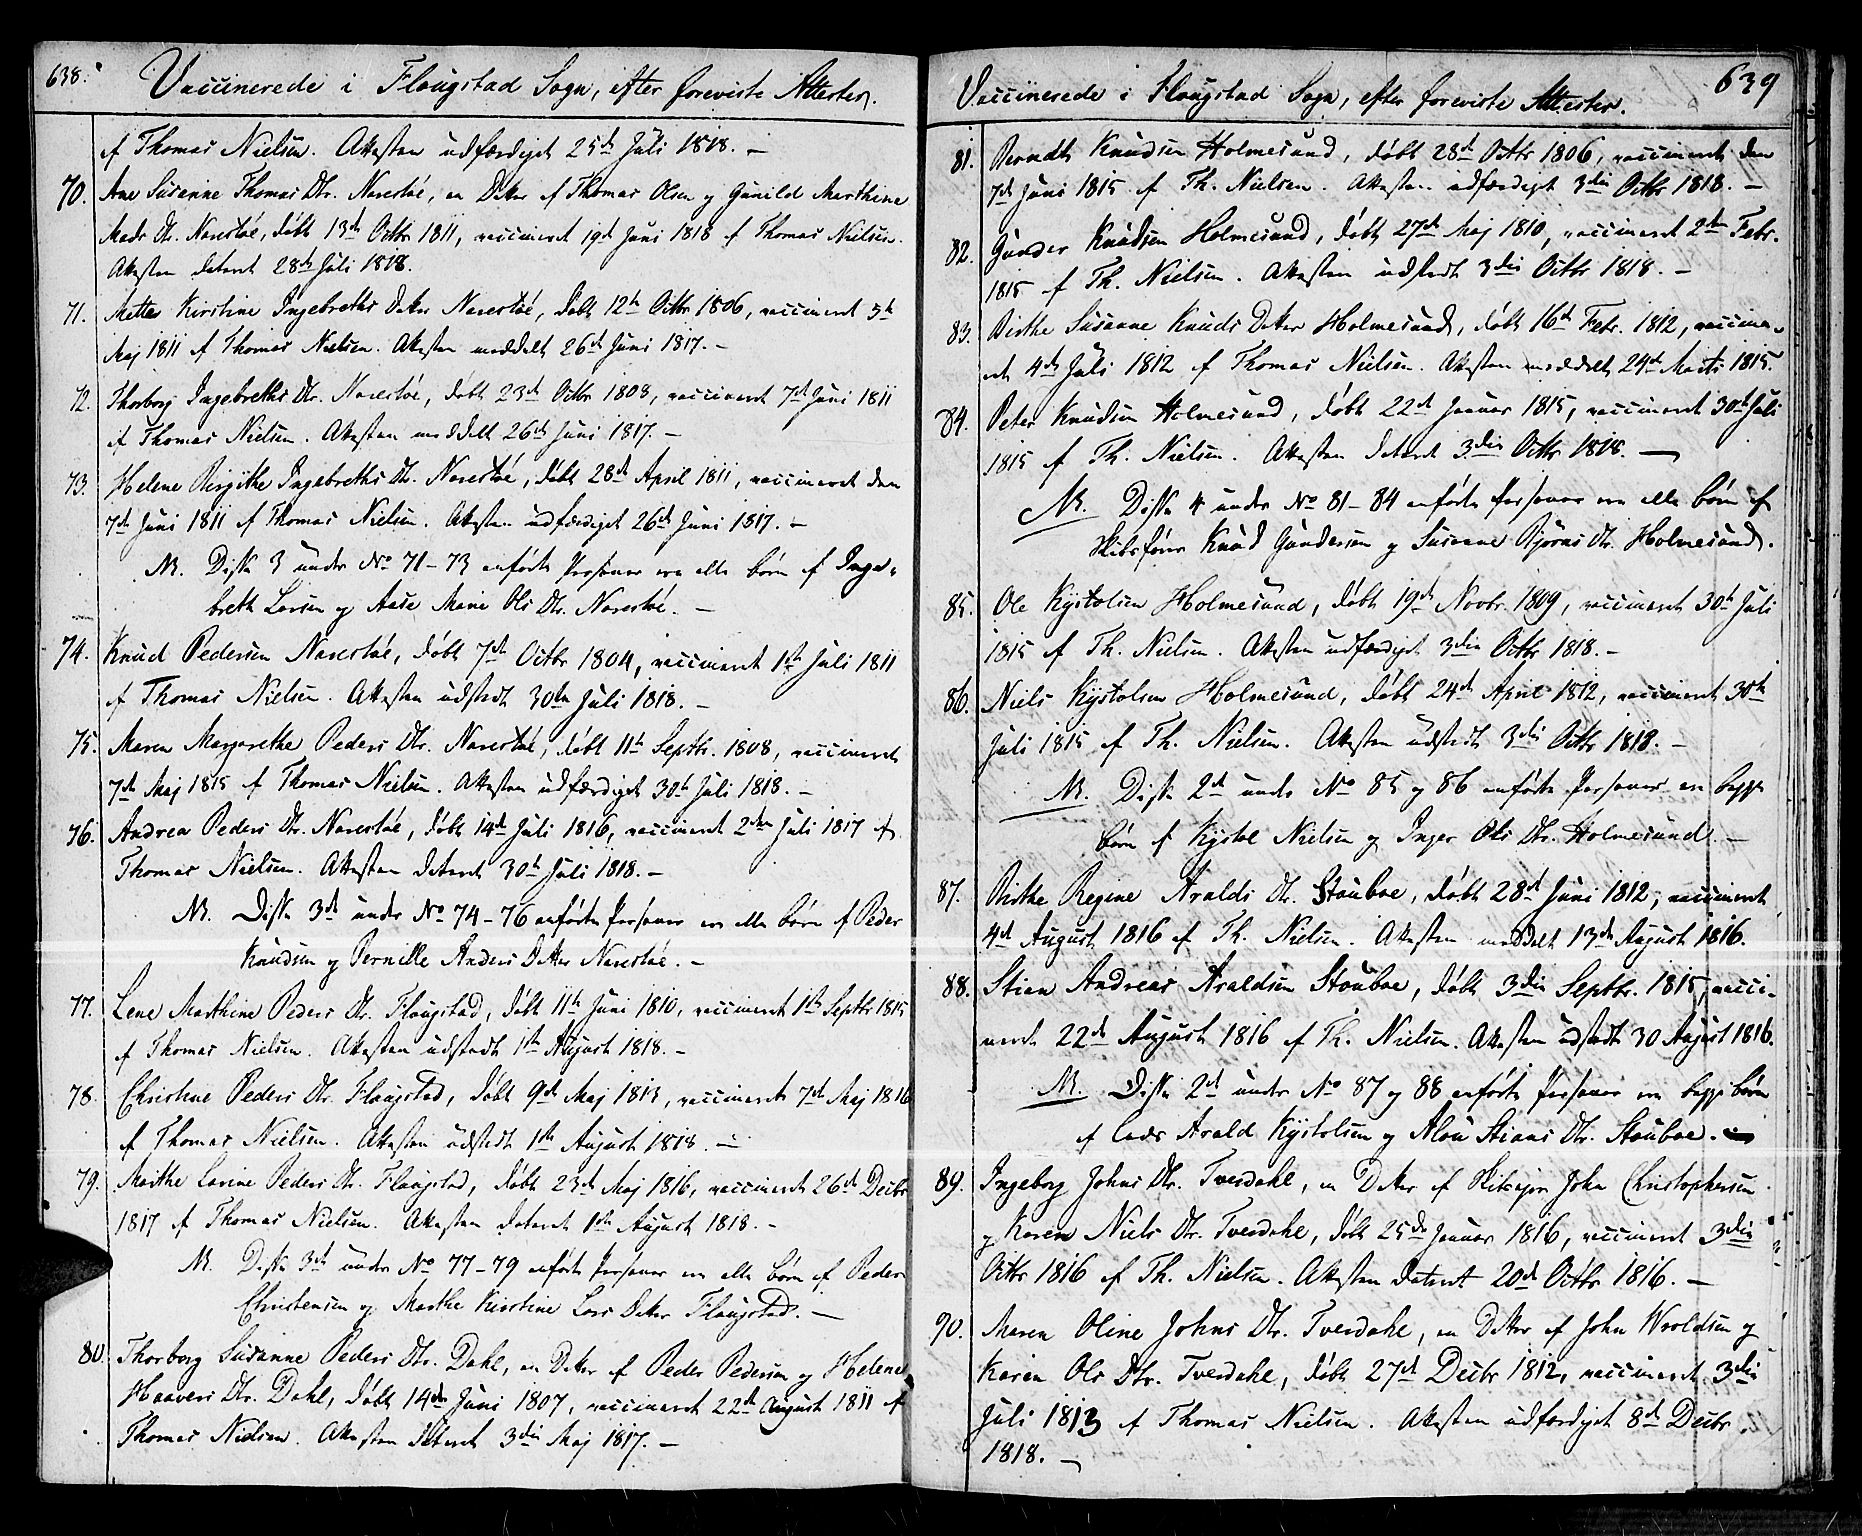 638.
Vaccinerede i Flaugstad Sogn, efter foreviste Attester.
af Thomas Nielsen. Attesten udfærdiget 25de Juli 1818. –
70. Ane Susanne Thomas Dtr. Narestøe, en Datter af Thomas Olsen og Gunild Marthine
Mads Dtr. Narestøe, døbt 13de Octbr 1811, vaccineret 19de Juni 1818 af Thomas Nielsen.
Attesten dateret 28de Juli 1818.
71. Mette Kirstine Ingebreths Datter Narestøe, døbt 12te Octbr 1806, vaccineret 5te
Maj 1811 af Thomas Nielsen. Attesten meddelt 26de Juni 1817. –
72. Thorborg Ingebreths Dtr. Narestøe, døbt 23de Octbr 1808, vaccineret 7de Juni 1811
af Thomas Nielsen. Attesten meddelt 26de Juni 1817. –
73. Helene Birgithe Ingebreths Dtr. Narestøe, døbt 28de April 1811, vaccineret den
7de Juni 1811 af Thomas Nielsen. Attesten udfærdiget 26de Juni 1817. –
NB. Disse 3 under No 71–73 anførte Personer ere alle børn af Inge-
breth Larsen og Aase Marie Ols Dtr. Narestøe. –
74. Knud Pedersen Narestøe, døbt 7de Octbr 1804, vaccineret 1ste Juli 1811
af Thomas Nielsen. Attesten udstedt 30te Juli 1818. –
75. Maren Margrethe Peders Dtr. Narestøe, døbt 11te Septbr. 1808, vaccineret
7de Maj 1815 af Thomas Nielsen. Attesten udfærdiget 30te Juli 1818. –
76. Andrea Peders Dtr. Narestøe, døbt 14de Juli 1816, vaccineret 2den Juli 1817 af
Thomas Nielsen. Attesten dateret 30te Juli 1818. –
NB. Disse 3de under No 74–76 anførte Personer ere alle børn af Peder
Knudsen og Pernille Anders Datter Narestøe. –
77. Lene Marthine Peders Dtr. Flaugstad, døbt 11te Juni 1810, vaccineret 1ste Septbr 1815
af Thomas Nielsen. Attesten udstedt 1ste August 1818. –
78. Christine Peders Dtr. Flaugstad, døbt 9de Maj 1813, vaccineret 7de Maj 1816
af Thomas Nielsen. Attesten udstedt 1ste August 1818. –
79. Marthe Lovine Peders Dtr. Flaugstad, døbt 23de Maj 1816, vaccineret 26de Decbr
1817 af Thomas Nielsen. Attesten dateret 1ste August 1818. –
NB. Disse 3de under No 77–79 anførte Personer ere alle børn af Peder
Christensen og Marthe Kirstine Lars Datter Flaugstad. –
80. Thorborg Susanne Peders Dtr. Dahl, en Datter af Peder Pedersen og Helene
Haavers Dtr. Dahl, døbt 14de Juni 1807, vaccineret 22de August 1811 af
Thomas Nielsen. Attesten dateret 3die Maj 1817. –
639
Vaccinerede i Flaugstad Sogn, efter foreviste Attester.
81. Berndt Knudsen Holmesund, døbt 28de Octbr 1806, vaccineret den
7de Juni 1815 af Th. Nielsen. Attesten udfærdiget 3die Octbr 1818. –
82. Gunder Knudsen Holmesund, døbt 27de Maj 1810, vaccineret 2den Febr.
1815 af Th. Nielsen. Attesten udstedt 3die Octbr 1818. –
83. Birthe Susanne Knuds Datter Holmesund, døbt 16de Febr. 1812, vaccine-
ret 4de Juli 1812 af Thomas Nielsen. Attesten meddelt 24de Marts 1815.
84. Peter Knudsen Holmesund, døbt 22de Januar 1815, vaccineret 30te Juli
1815 af Th. Nielsen. Attesten dateret 3die Octbr 1818. –
NB. Disse 4 under No 81–84 anførte Personer ere alle børn af
Skibsfører Knud Gundersen og Susanne Bjørns Dtr. Holmesund.
85. Ole Kystolsen Holmesund, døbt 19de Novbr. 1809, vaccineret 30te Juli
1815 af Th. Nielsen. Attesten udfærdiget 3die Octbr 1818. –
86. Niels Kystolsen Holmesund, døbt 24de April 1812, vaccineret 30te
Juli 1815 af Th. Nielsen. Attesten udstedt 3die Octbr 1818. –
NB. Disse 2de under No 85 og 86 anførte Personer ere begge
børn af Kystol Nielsen og Inger Ols Dtr. Holmesund. –
87. Birthe Regine Aralds Dtr. Stouboe, døbt 28de Juni 1812, vaccineret
4de August 1816 af Th. Nielsen. Attesten meddelt 13de August 1816.
88. Stian Andreas Araldsen Stouboe, døbt 3die Septbr. 1815, vacci-
neret 22de August 1816 af Th. Nielsen. Attesten udstedt 30 August 1816.
NB. Disse 2de under No 87 og 88 anførte Personer ere begge børn
af Lods Arald Kystolsen og Alou Stians Dtr. Stouboe. –
89. Ingeborg Johns Dtr. Tverdahl, en Datter af Skibsejer John Christophersen
og Karen Niels Dtr. Tverdahl, døbt 25de Januar 1816, vaccineret 3die
Octbr 1816 af Th. Nielsen. Attesten dateret 20de Octbr 1816. –
90. Maren Oline Johns Dtr. Tverdahl, en Datter af John Wroldsen og
Karen Ols Dtr. Tverdahl, døbt 27de Decbr 1812, vaccineret 3die
Juli 1813 af Thomas Nielsen. Attesten udfærdiget 8de Decbr
1818. –